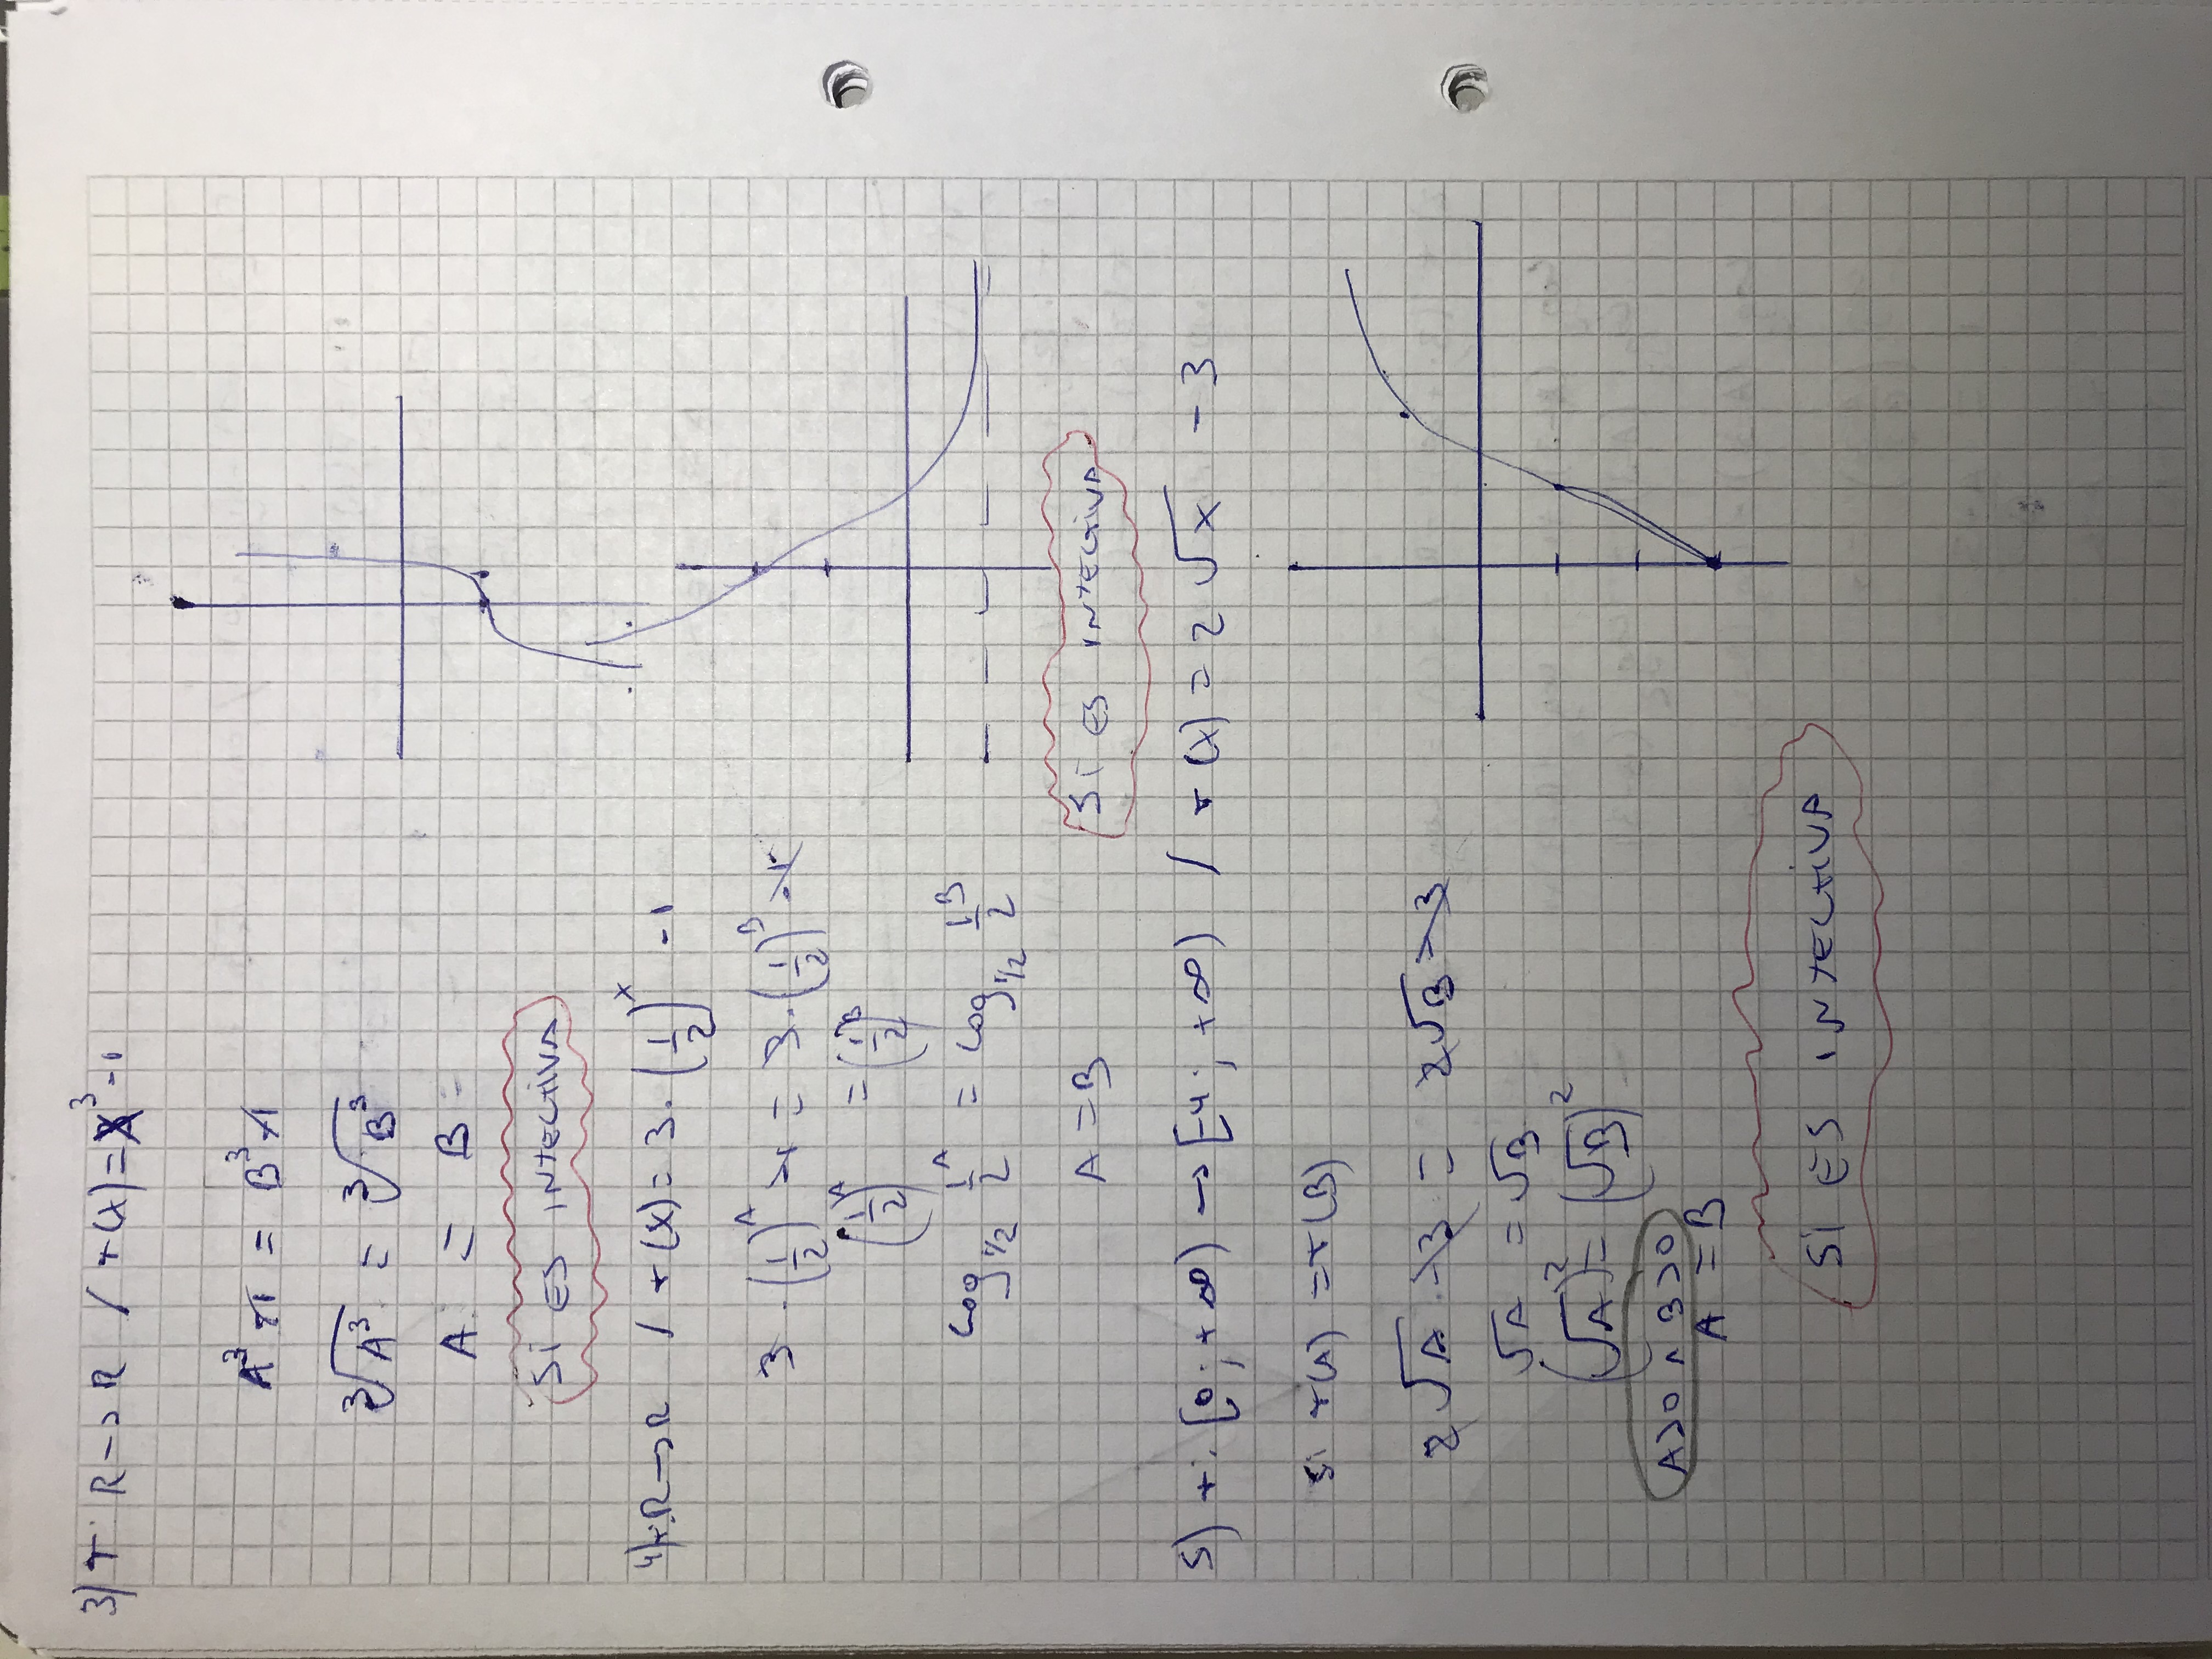 3) f: R → R / f(x) = X³ - 1
A³ - 1 = B³ - 1
∛A³ = ∛B³
A = B
SI ES INYECTIVA
4) f: R → R / f(x) = 3 · (1/2)^x - 1
3 · (1/2)^A - 1 = 3 · (1/2)^B - 1
(1/2)^A = (1/2)^B
Log_1/2 1/2^A = Log_1/2 1/2^B
A = B
SI ES INYECTIVA
5) f: [0; +∞) → [-4; +∞) / f(x) = 2√x - 3
Si f(A) = f(B)
2√A - 3 = 2√B - 3
√A = √B
(√A)² = (√B)²
A>0 ∧ B>0
A = B
SI ES INYECTIVA